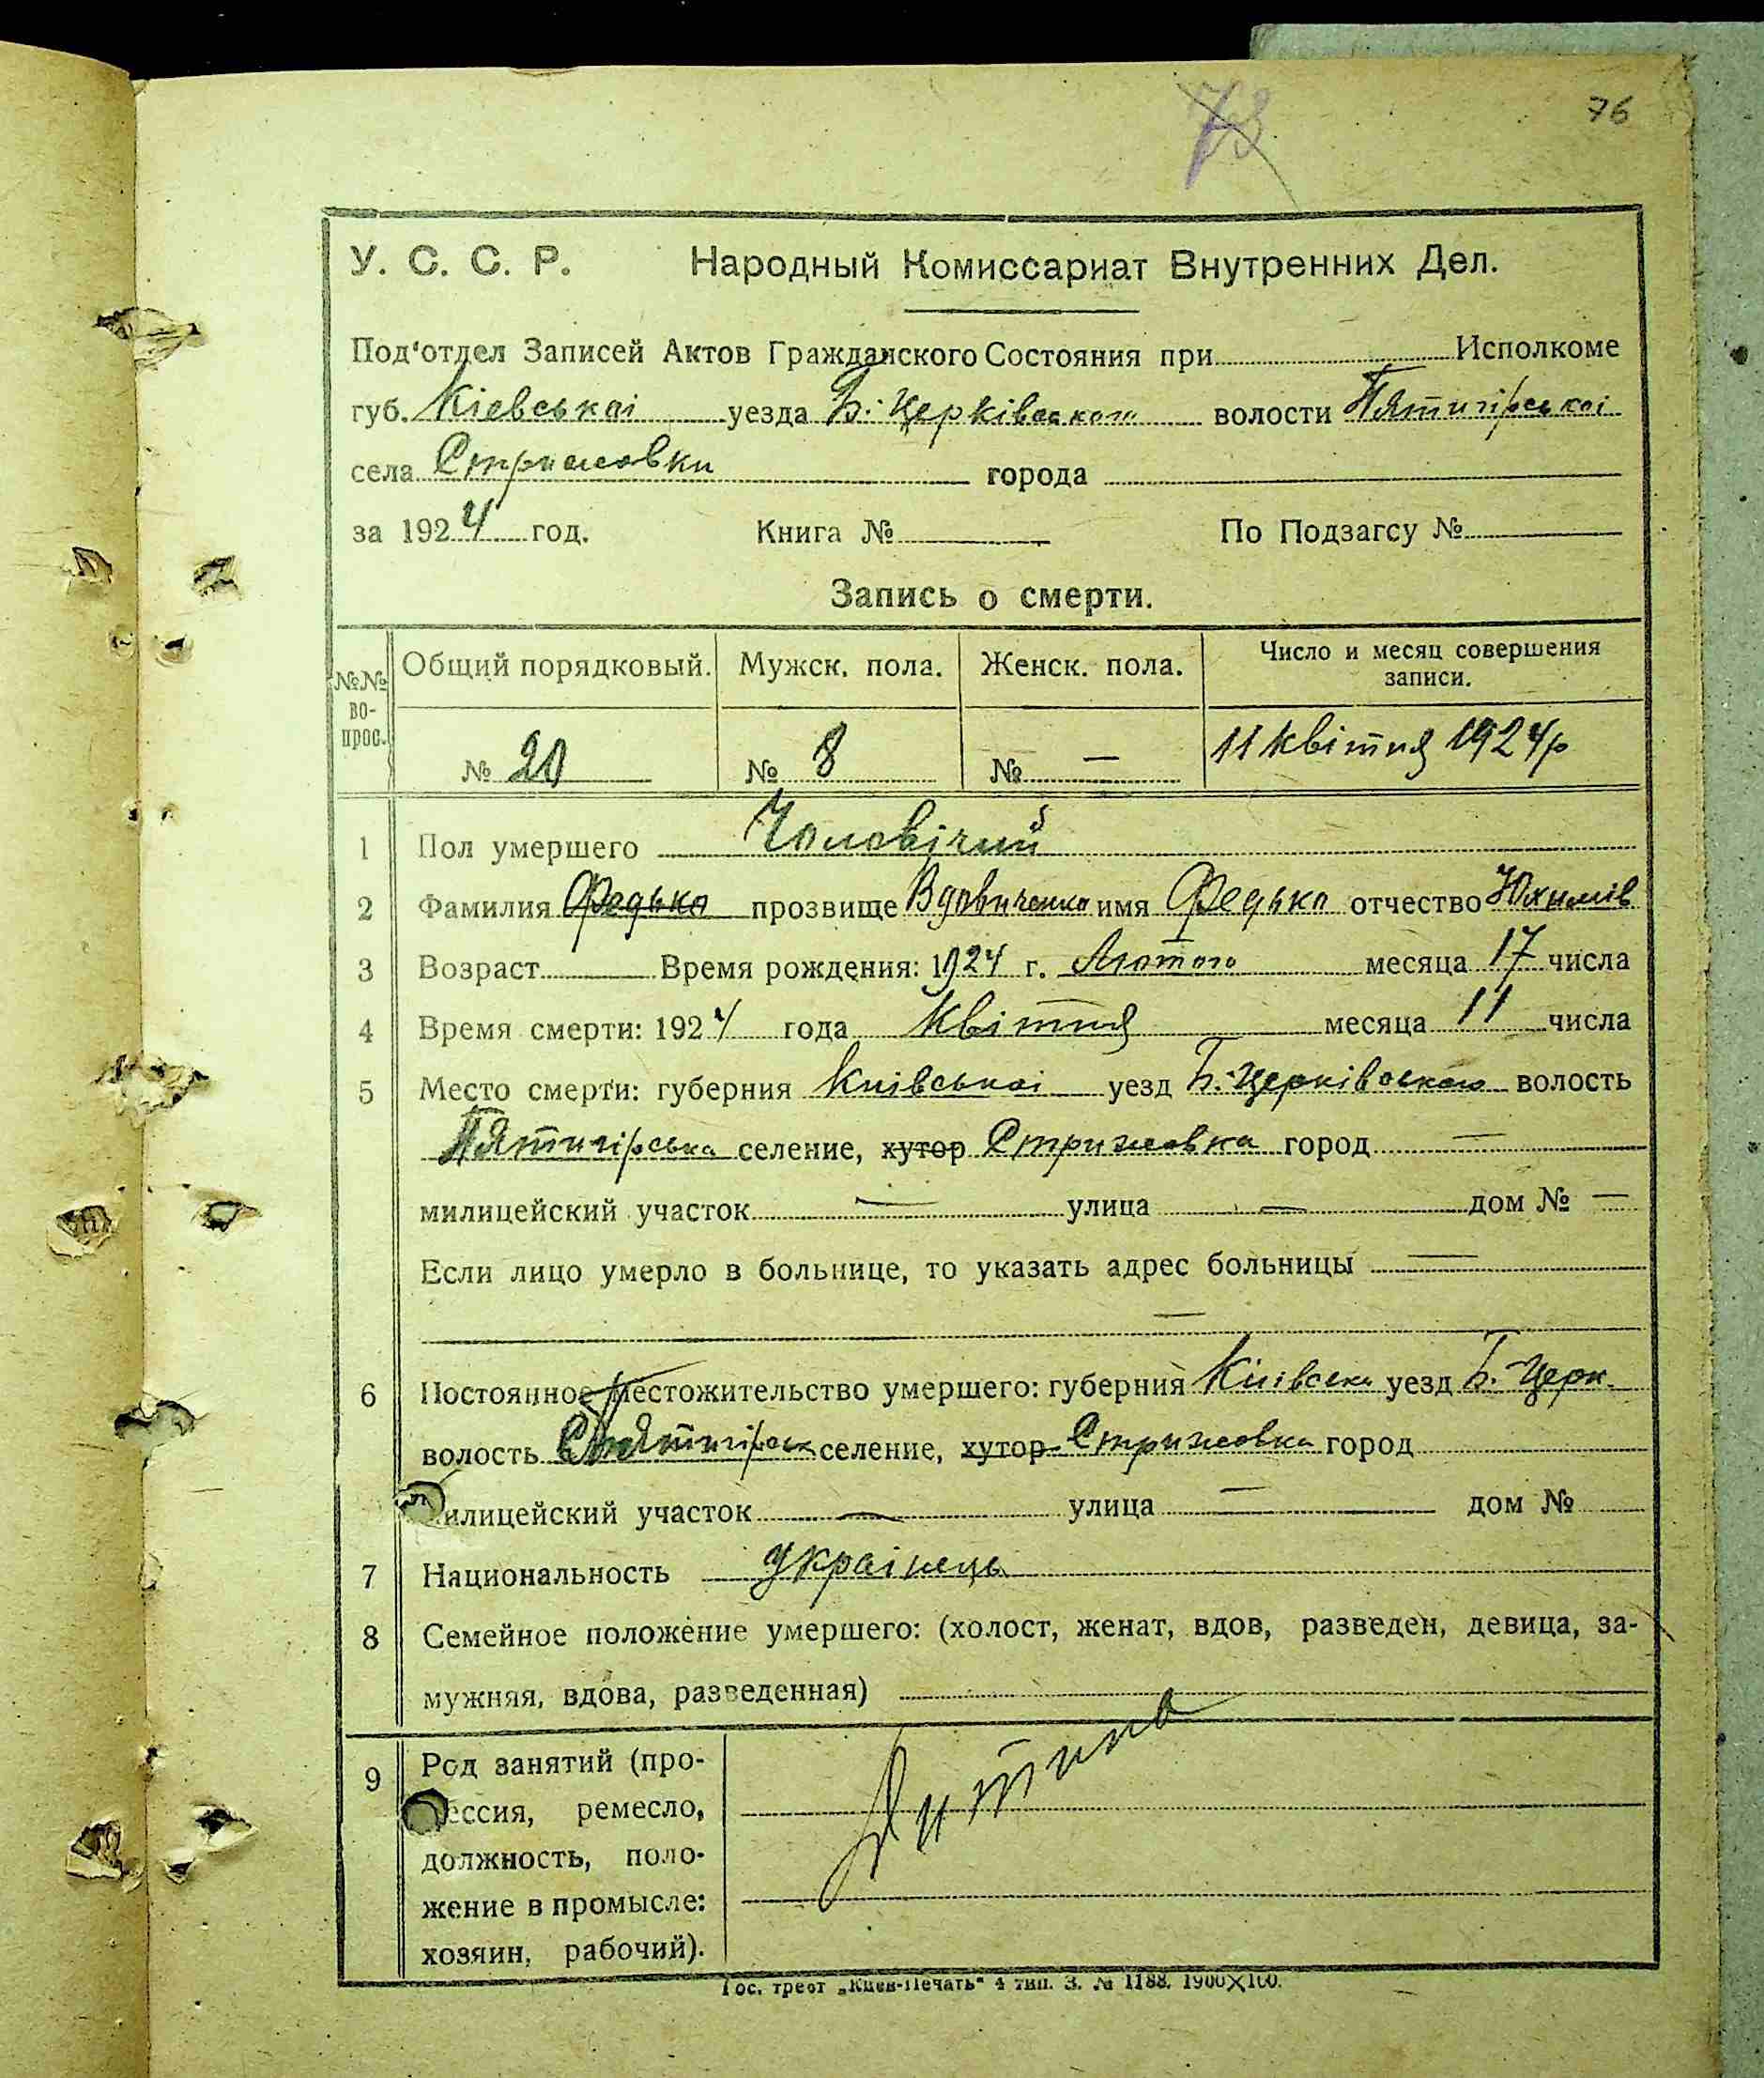 73
76
У. С. С. Р. Народный Комиссариат Внутренних Дел.
Под'отдел Записей Актов Гражданского Состояния при Исполкоме
губ. Кіевськоі уезда Б.-Церківського волости Пятигірськоі
села Стрижовки города
за 1924 год. Книга № По Подзагсу №
Запись о смерти.
№№ во-прос. Общий порядковый. Мужск. пола. Женск. пола. Число и месяц совершения записи.
№ 20 № 8 № — 11 квітня 1924р
1 Пол умершего Чоловічий
2 Фамилия Федько прозвище Вдовиченко имя Федько отчество Юхимів
3 Возраст Время рождения: 1924 г. Лютого месяца 17 числа
4 Время смерти: 1924 года квітня месяца 11 числа
5 Место смерти: губерния Киівськоі уезд Б.-Церківського волость
Пятигірська селение, хутор Стрижовка город —
милицейский участок — улица — дом № —
Если лицо умерло в больнице, то указать адрес больницы —
—
6 Постоянное местожительство умершего: губерния Киівська уезд Б. Церк.
волость Пятигірськ селение, хутор Стрижовка город
милицейский участок — улица — дом №
7 Национальность Украінець
8 Семейное положение умершего: (холост, женат, вдов, разведен, девица, за-
мужняя, вдова, разведенная)
9 Род занятий (про-
фессия, ремесло,
должность, поло-
жение в промысле:
хозяин, рабочий).
Дитина
Гос. трест „Киев-Печать“ 4 тип. З. № 1188. 1900×100.